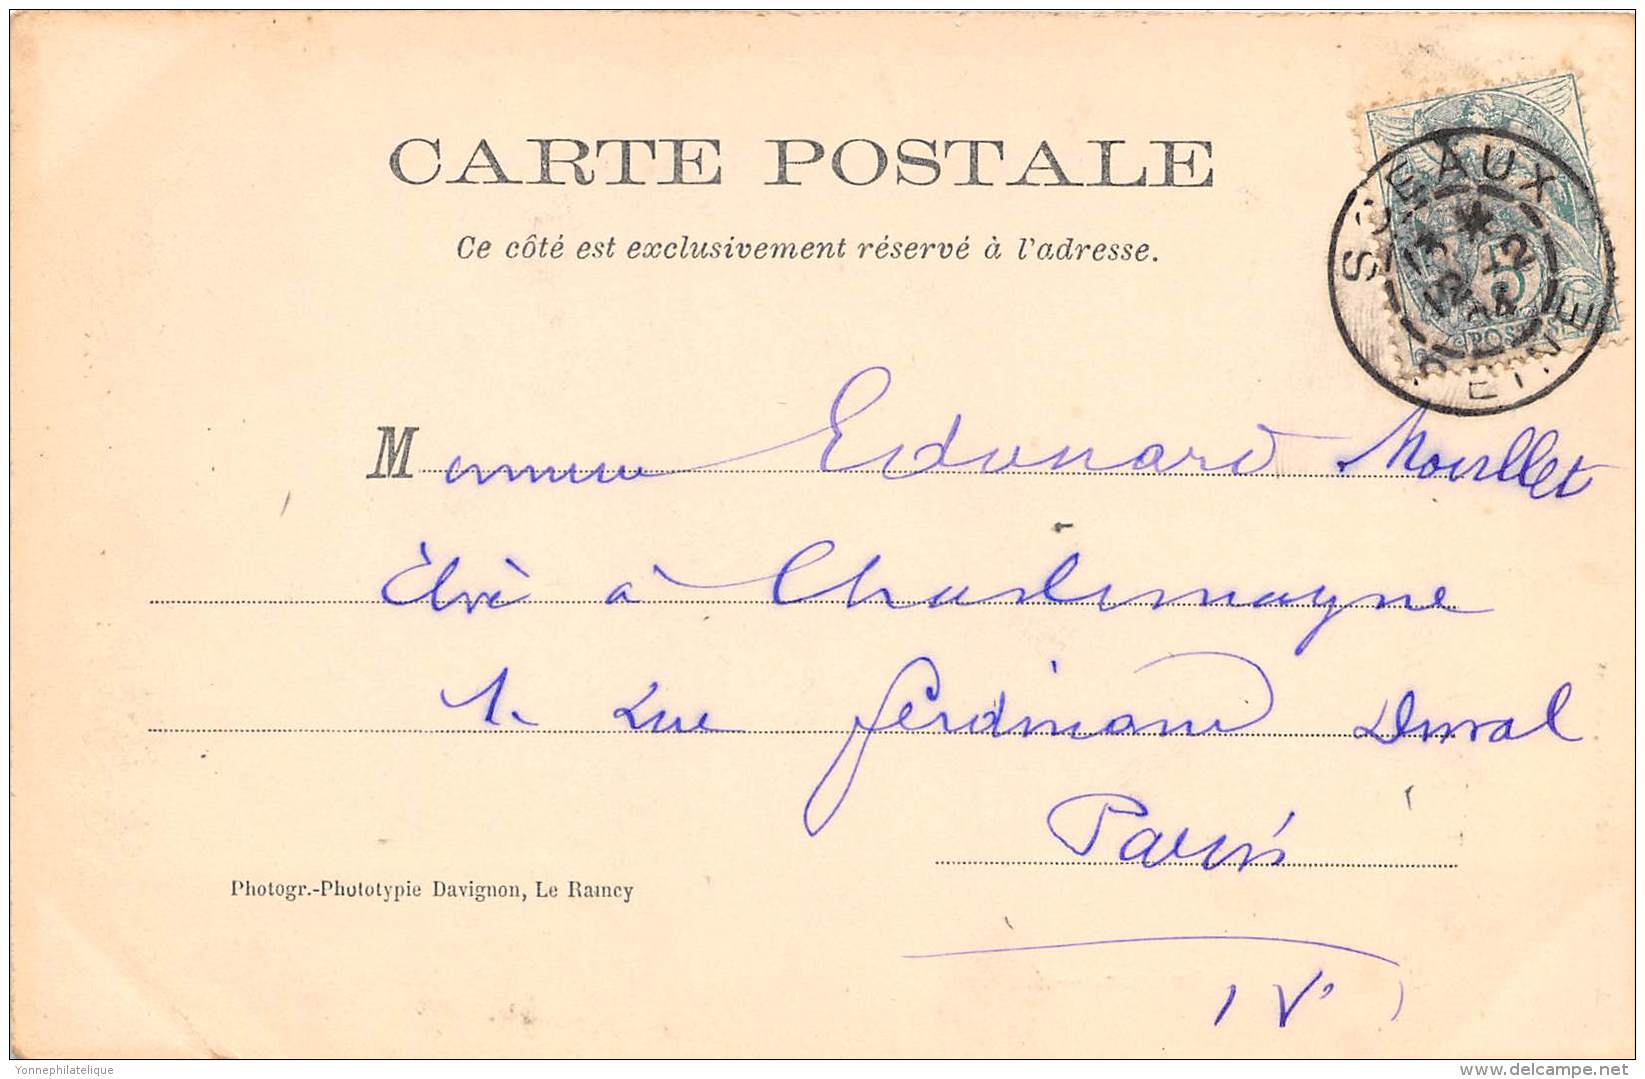 CARTE POSTALE
Ce côté est exclusivement réservé à l'adresse.
SCEAUX
SEINE
12
04
5
POSTES
M Edouard Moullet
Élève à Charlemagne
1. Rue Ferdinand Duval
Paris
IVe
Photogr.-Phototypie Davignon, Le Raincy
Yonnephilatelique
delcampe.net